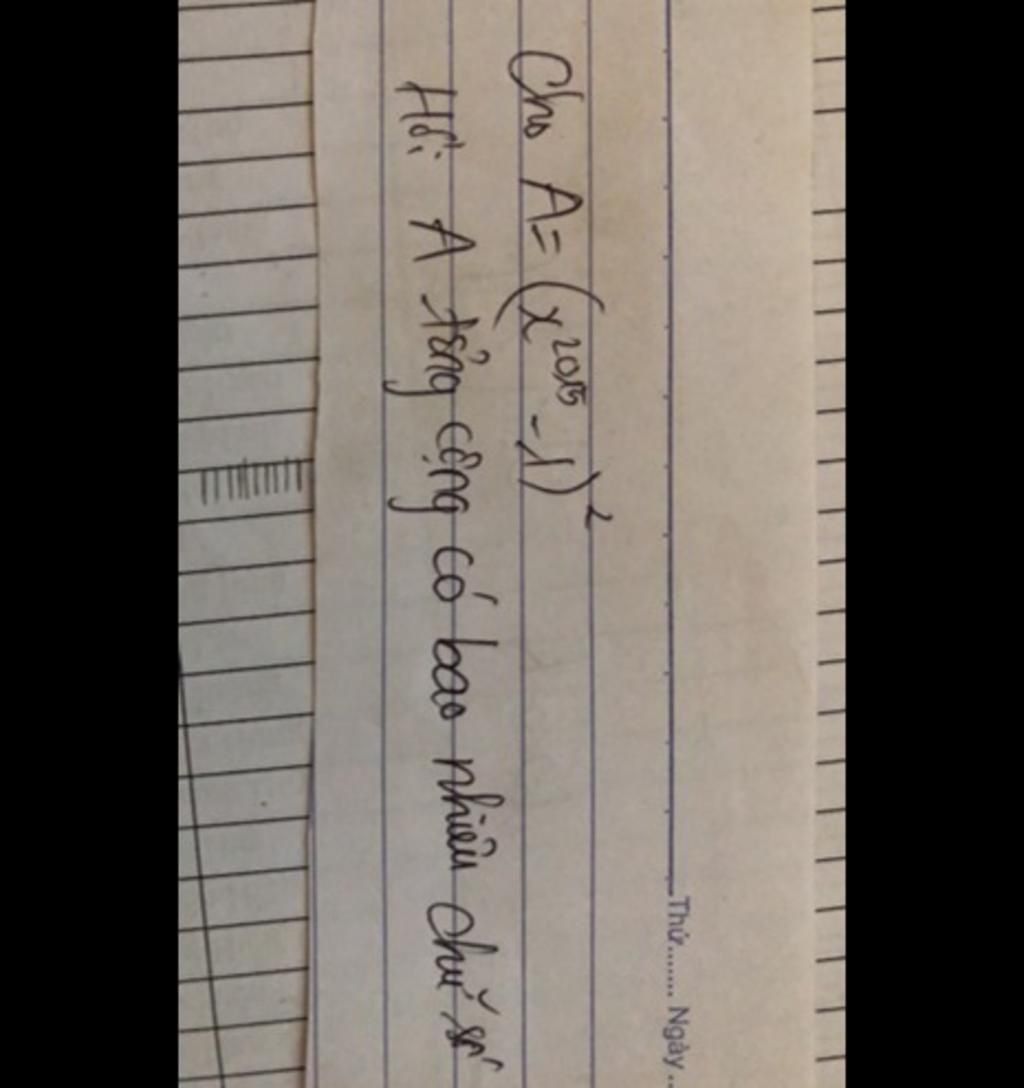 Thứ........ Ngày..
Cho A = (x²⁰¹⁵ - 1)²
Hỏi A tổng cộng có bao nhiêu chữ số